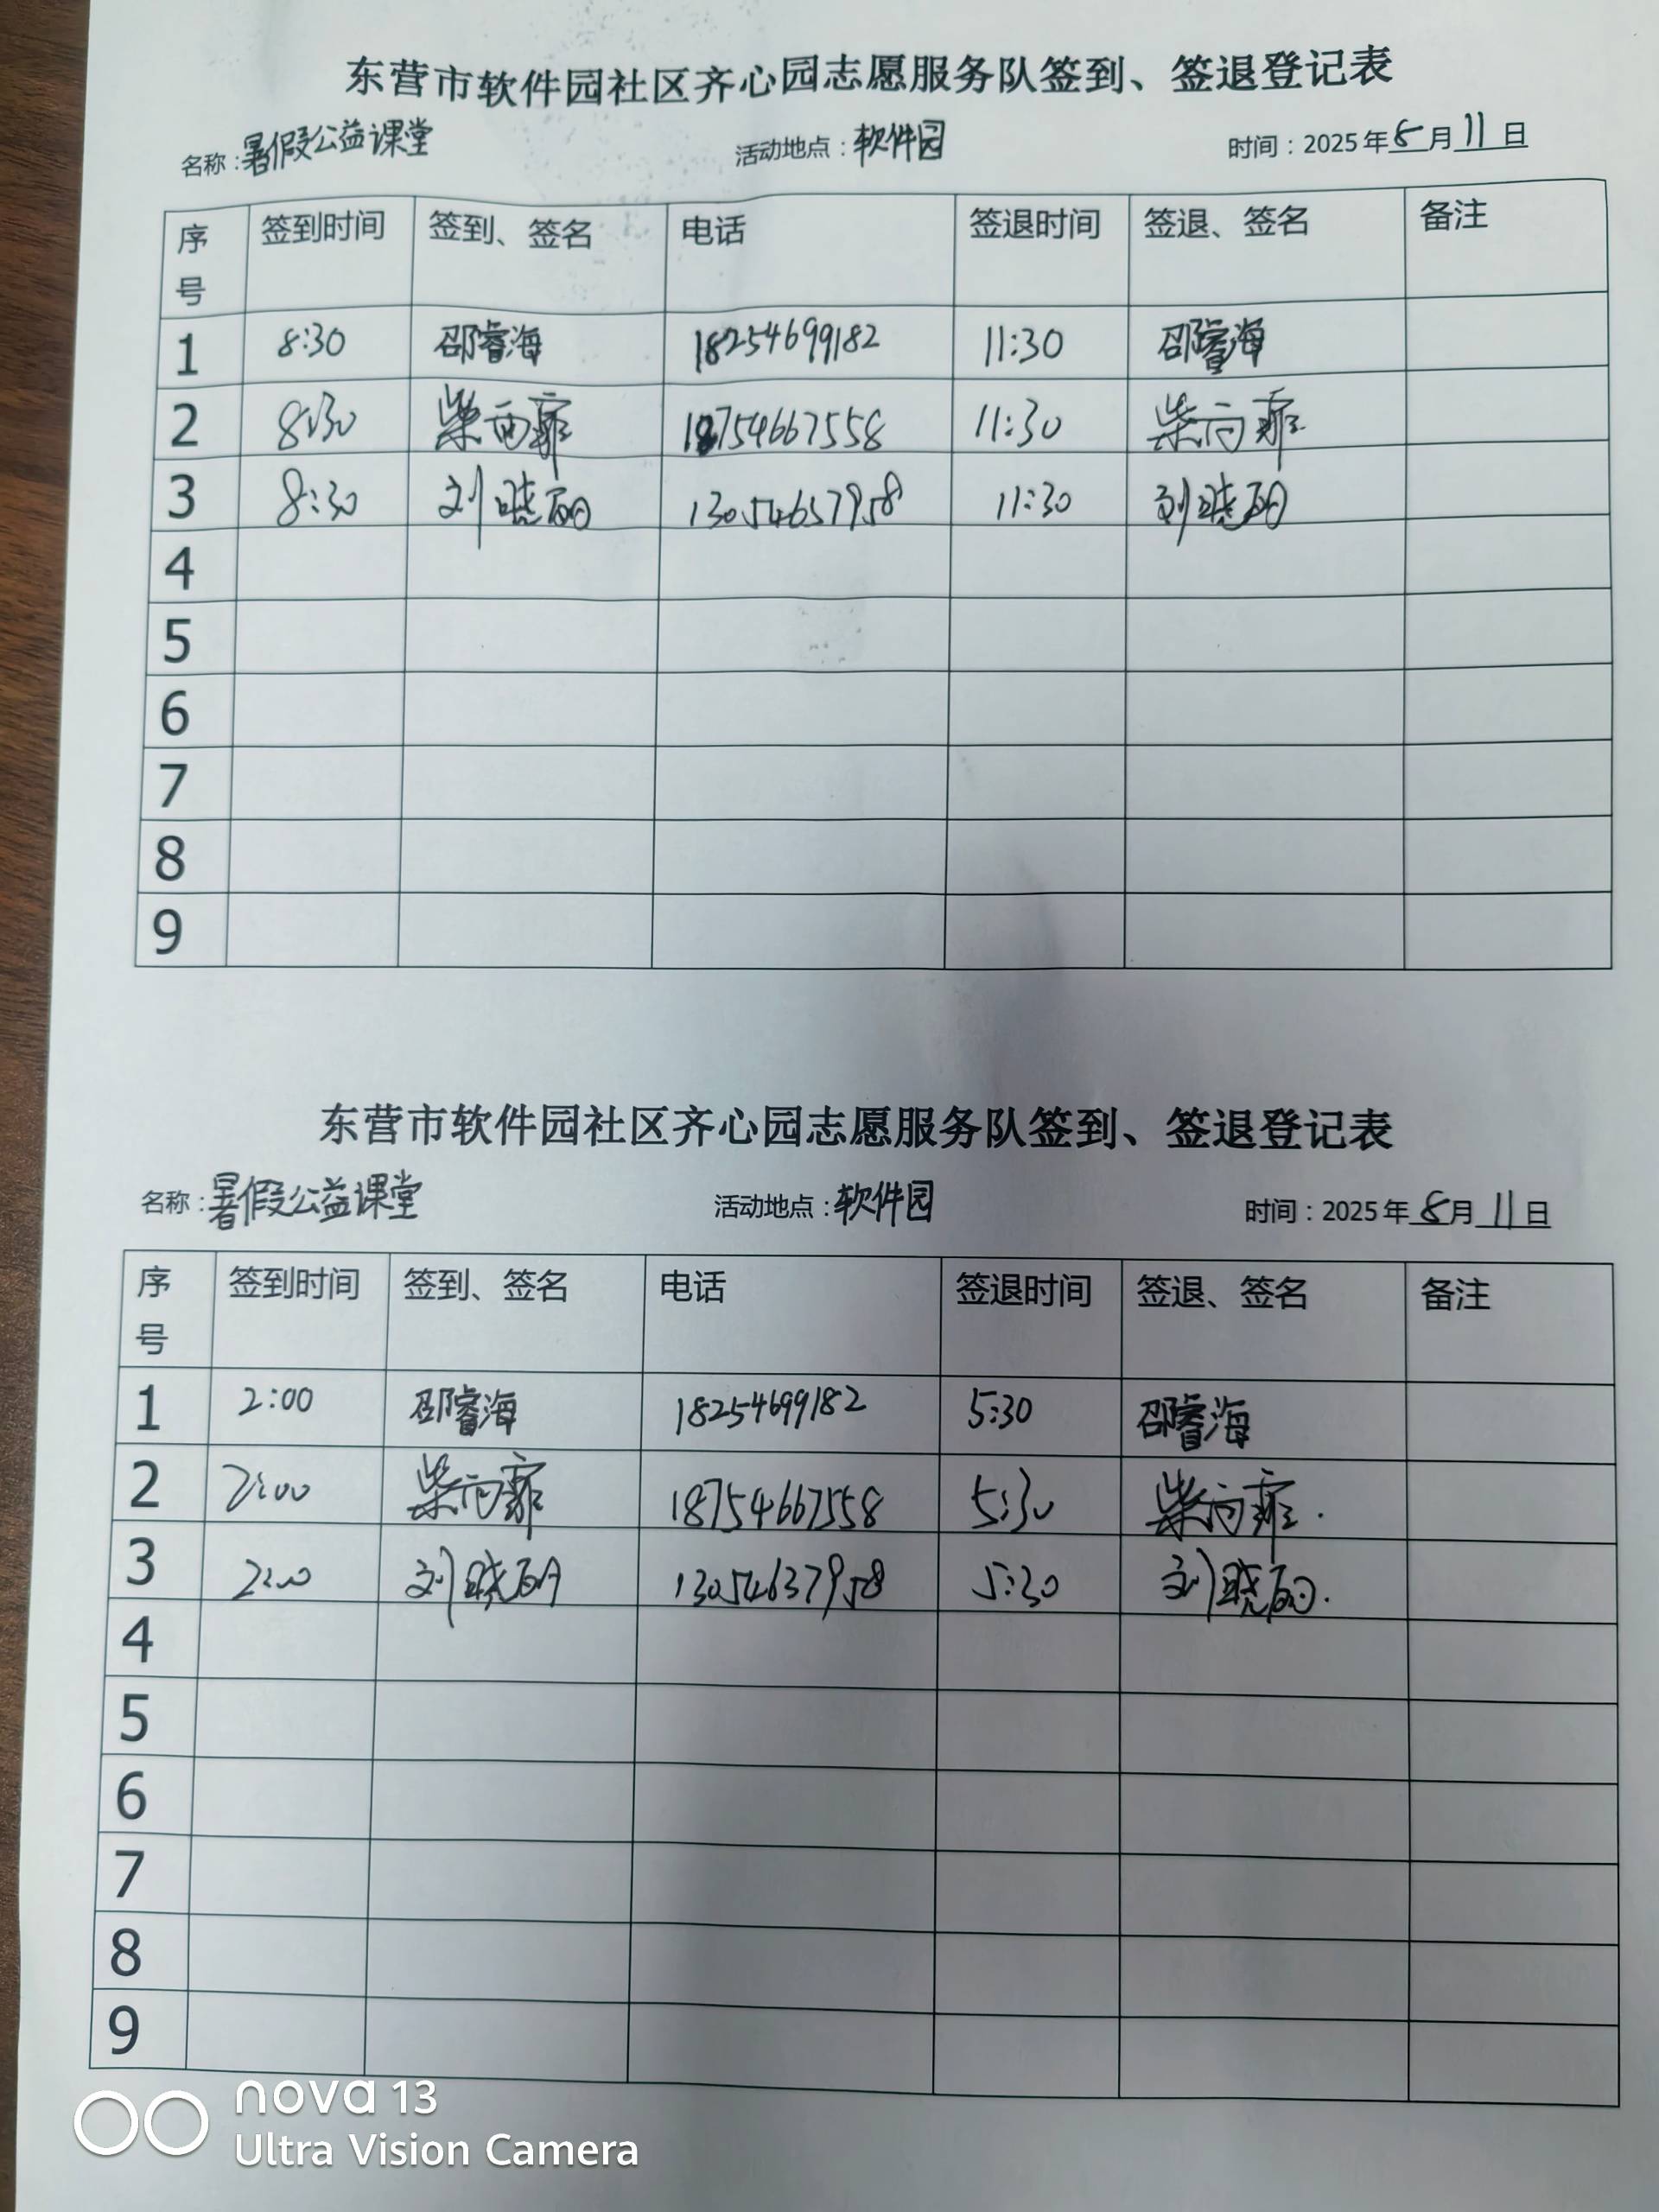 东营市软件园社区齐心园志愿服务队签到、签退登记表
名称：暑假公益课堂 活动地点：软件园 时间：2025年8月11日
序号 签到时间 签到、签名 电话 签退时间 签退、签名 备注
1 8:30 邵睿海 18254699182 11:30 邵睿海
2 8:30 柴向霏 18754667558 11:30 柴向霏
3 8:30 刘晓丽 13054637958 11:30 刘晓丽
4
5
6
7
8
9
东营市软件园社区齐心园志愿服务队签到、签退登记表
名称：暑假公益课堂 活动地点：软件园 时间：2025年8月11日
序号 签到时间 签到、签名 电话 签退时间 签退、签名 备注
1 2:00 邵睿海 18254699182 5:30 邵睿海
2 2:00 柴向霏 18754667558 5:30 柴向霏.
3 2:00 刘晓丽 13054637958 5:30 刘晓丽.
4
5
6
7
8
9
nova 13
Ultra Vision Camera